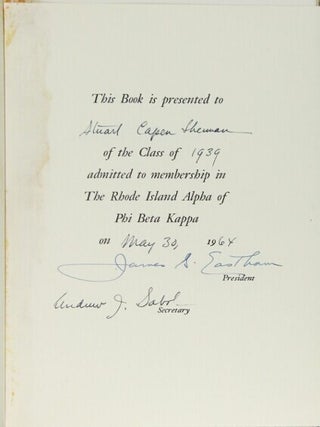 This Book is presented to
Stuart Capen Sherman
of the Class of 1939
admitted to membership in
The Rhode Island Alpha of
Phi Beta Kappa
on May 30, 1964
James S. Eastham
President
Andrew J. Sabol
Secretary